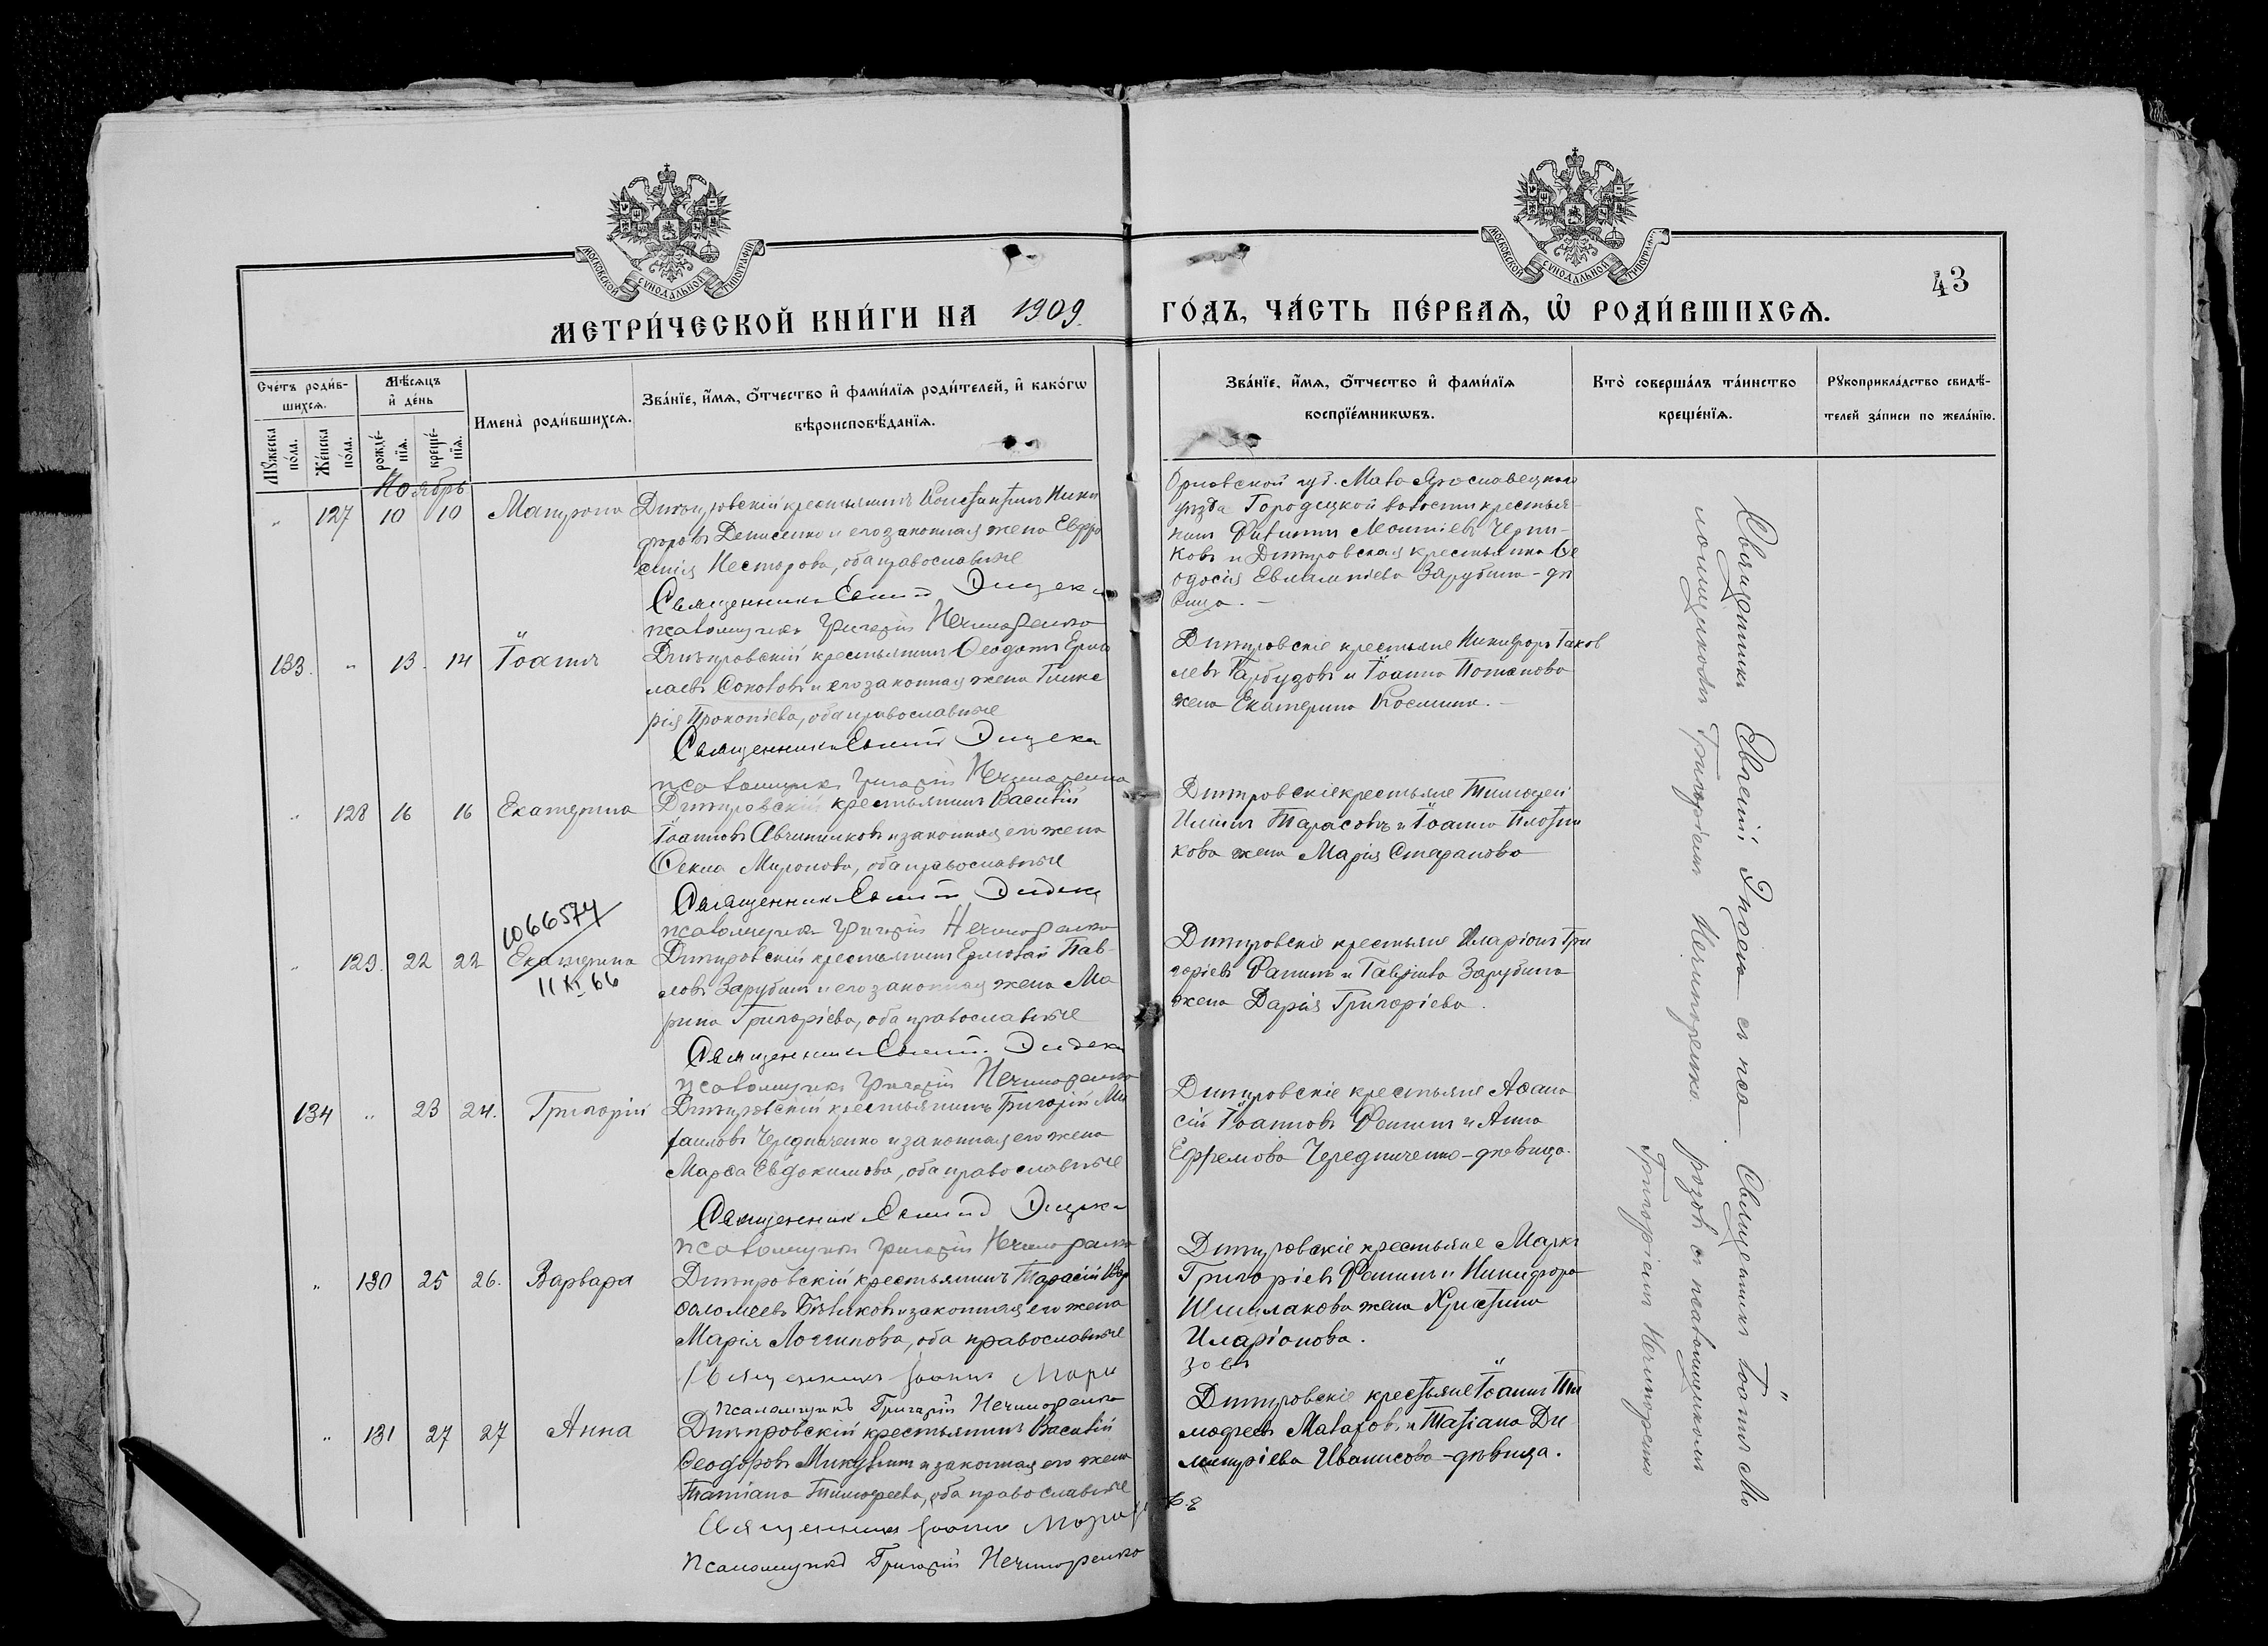 МОСКОВСКОЙ СѴНОДАЛЬНОЙ ТИПОГРАФІИ
МОСКОВСКОЙ СѴНОДАЛЬНОЙ ТИПОГРАФІИ
43
МЕТРИ́ЧЕСКОЙ КНИ́ГИ НА 1909. ГО́ДЪ, ЧА́СТЬ ПЕ́РВАЯ, Ѡ҆ РОДИ́ВШИХСЯ.
Сче́тъ роди́в-
шихся.
Мѣ́сяцъ
и҆ де́нь
Имена̀ роди́вшихся.
Зва́нїе, и҆́мя, ѻ҆́тчество и҆ фами́лїя роди́телей, и҆ како́гѡ
вѣроисповѣ́данїя.
Зва́нїе, и҆́мя, ѻ҆́тчество и҆ фами́лїя
воспрїе́мникѡвъ.
Кто̀ соверша́лъ та́инство
креще́нїя.
Рꙋкоприкла́дство свидѣ́-
телей за́писи по жела́нїю.
Мꙋ́жеска
по́ла.
Же́нска
по́ла.
рожде́-
нїя.
креще́-
нїя.
Ноябрь
" 127 10 10 Матрона
Дмитровскій крестьянинъ Константинъ Ники
форовъ Денисенко и его законная жена Евфро
синія Несторова, оба православные
Священникъ Евгеній
Псаломщикъ Григорій Нечипоренко
Орловской губ. Мало Ярославецкаго
уѣзда Городецкой волости крестья-
нинъ
ковъ и Дмитровская крестьянка Ѳе
одосія Евлампіева Зарубина - дѣ
вица. -
133. " 13. 14 Іоаннъ
Дмитровскій крестьянинъ Ѳеодотъ Ермо
лаевъ Соколовъ и его законная жена Глике
рія Прокопіева, оба православные
Священникъ Евгеній
Псаломщикъ Григорій Нечипоренко
Дмитровскіе крестьяне Никифоръ Іаков
левъ Гарбузовъ и Іоанна Потапова
жена Екатерина Космина. -
" 128 16 16 Екатерина
Дмитровскій крестьянинъ Василій
Іоанновъ Овчинниковъ и законная его жена
Ѳекла Миронова, оба православные
Священникъ Евгеній
Псаломщикъ Григорій Нечипоренко
Дмитровскіе крестьяне Тимоѳей
Ильинъ Тарасовъ и Іоанна Плотни
кова жена Марія Стефанова
1066574
" 129. 22 22 Екатерина
11 XI 66
Дмитровскій крестьянинъ Ермолай Пав-
ловъ Зарубинъ и его законная жена Ма
рина Григоріева, оба православные
Священникъ Евгеній
Псаломщикъ Григорій Нечипоренко
Дмитровскіе крестьяне Иларіонъ Гри
горіевъ Фанинъ и Гавріила Зарубина
жена Дарія Григоріева.
134 " 23 24. Григорій
Дмитровскій крестьянинъ Григорій Ми
хаиловъ Чередниченко и законная его жена
Марѳа Евдокимова, оба православные
Священникъ Евгеній
Псаломщикъ Григорій Нечипоренко
Дмитровскіе крестьяне Аѳана
сій Іоанновъ Фанинъ и Анна
Ефремова Чередниченко - дѣвица.
" 130 25 26. Варвара
Дмитровскій крестьянинъ Тарасій Вар
ѳоломеевъ Бѣликовъ и законная его жена
Марія Логгинова, оба православные
Священникъ Іоаннъ Моро
зовъ
Псаломщикъ Григорій Нечипоренко
Дмитровскіе крестьяне Маркъ
Григоріевъ Фанинъ и Никифора
Шишлакова жена Христина
Иларіонова.
" 131 27 27 Анна
Дмитровскій крестьянинъ Василій
Ѳеодоровъ Микулинъ и законная его жена
Татіана Тимоѳеева, оба православные
Священникъ Іоаннъ Морозовъ
Псаломщикъ Григорій Нечипоренко
Дмитровскіе крестьяне Іоаннъ Ти
моѳеевъ Малаховъ и Татіана Ди
митріева Иванисова - дѣвица.
Священникъ Евгеній съ пса
ломщикомъ Григоріемъ Нечипоренко
Священникъ Іоаннъ Мо
розовъ съ псаломщикомъ
Григоріемъ Нечипоренко